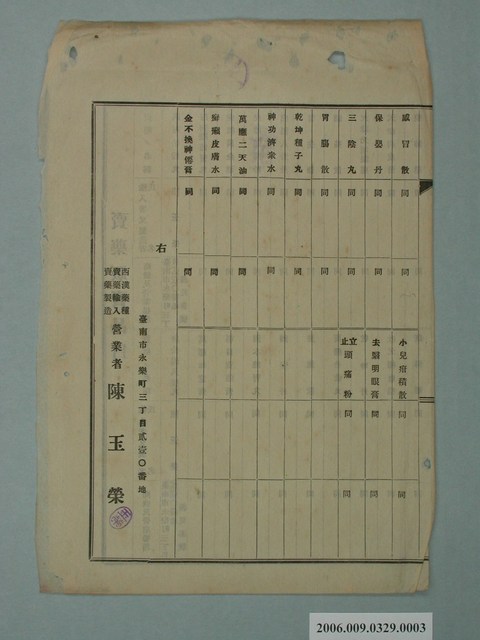 感冒散 同 同
保嬰丹 同 同
三陰丸 同 同
胃腸散 同 同
乾坤種子丸 同 同
神功濟衆水 同 同
萬應二天油 同 同
癬癩皮膚水 同 同
金不換神傷膏 同 同
小兒疳積散 同 同
去翳明眼膏 同 同
立止頭痛粉 同 同
右
臺南市永樂町三丁目貳壹〇番地
西漢藥種
賣藥輸入
賣藥製造
營業者 陳玉榮
2006.009.0329.0003